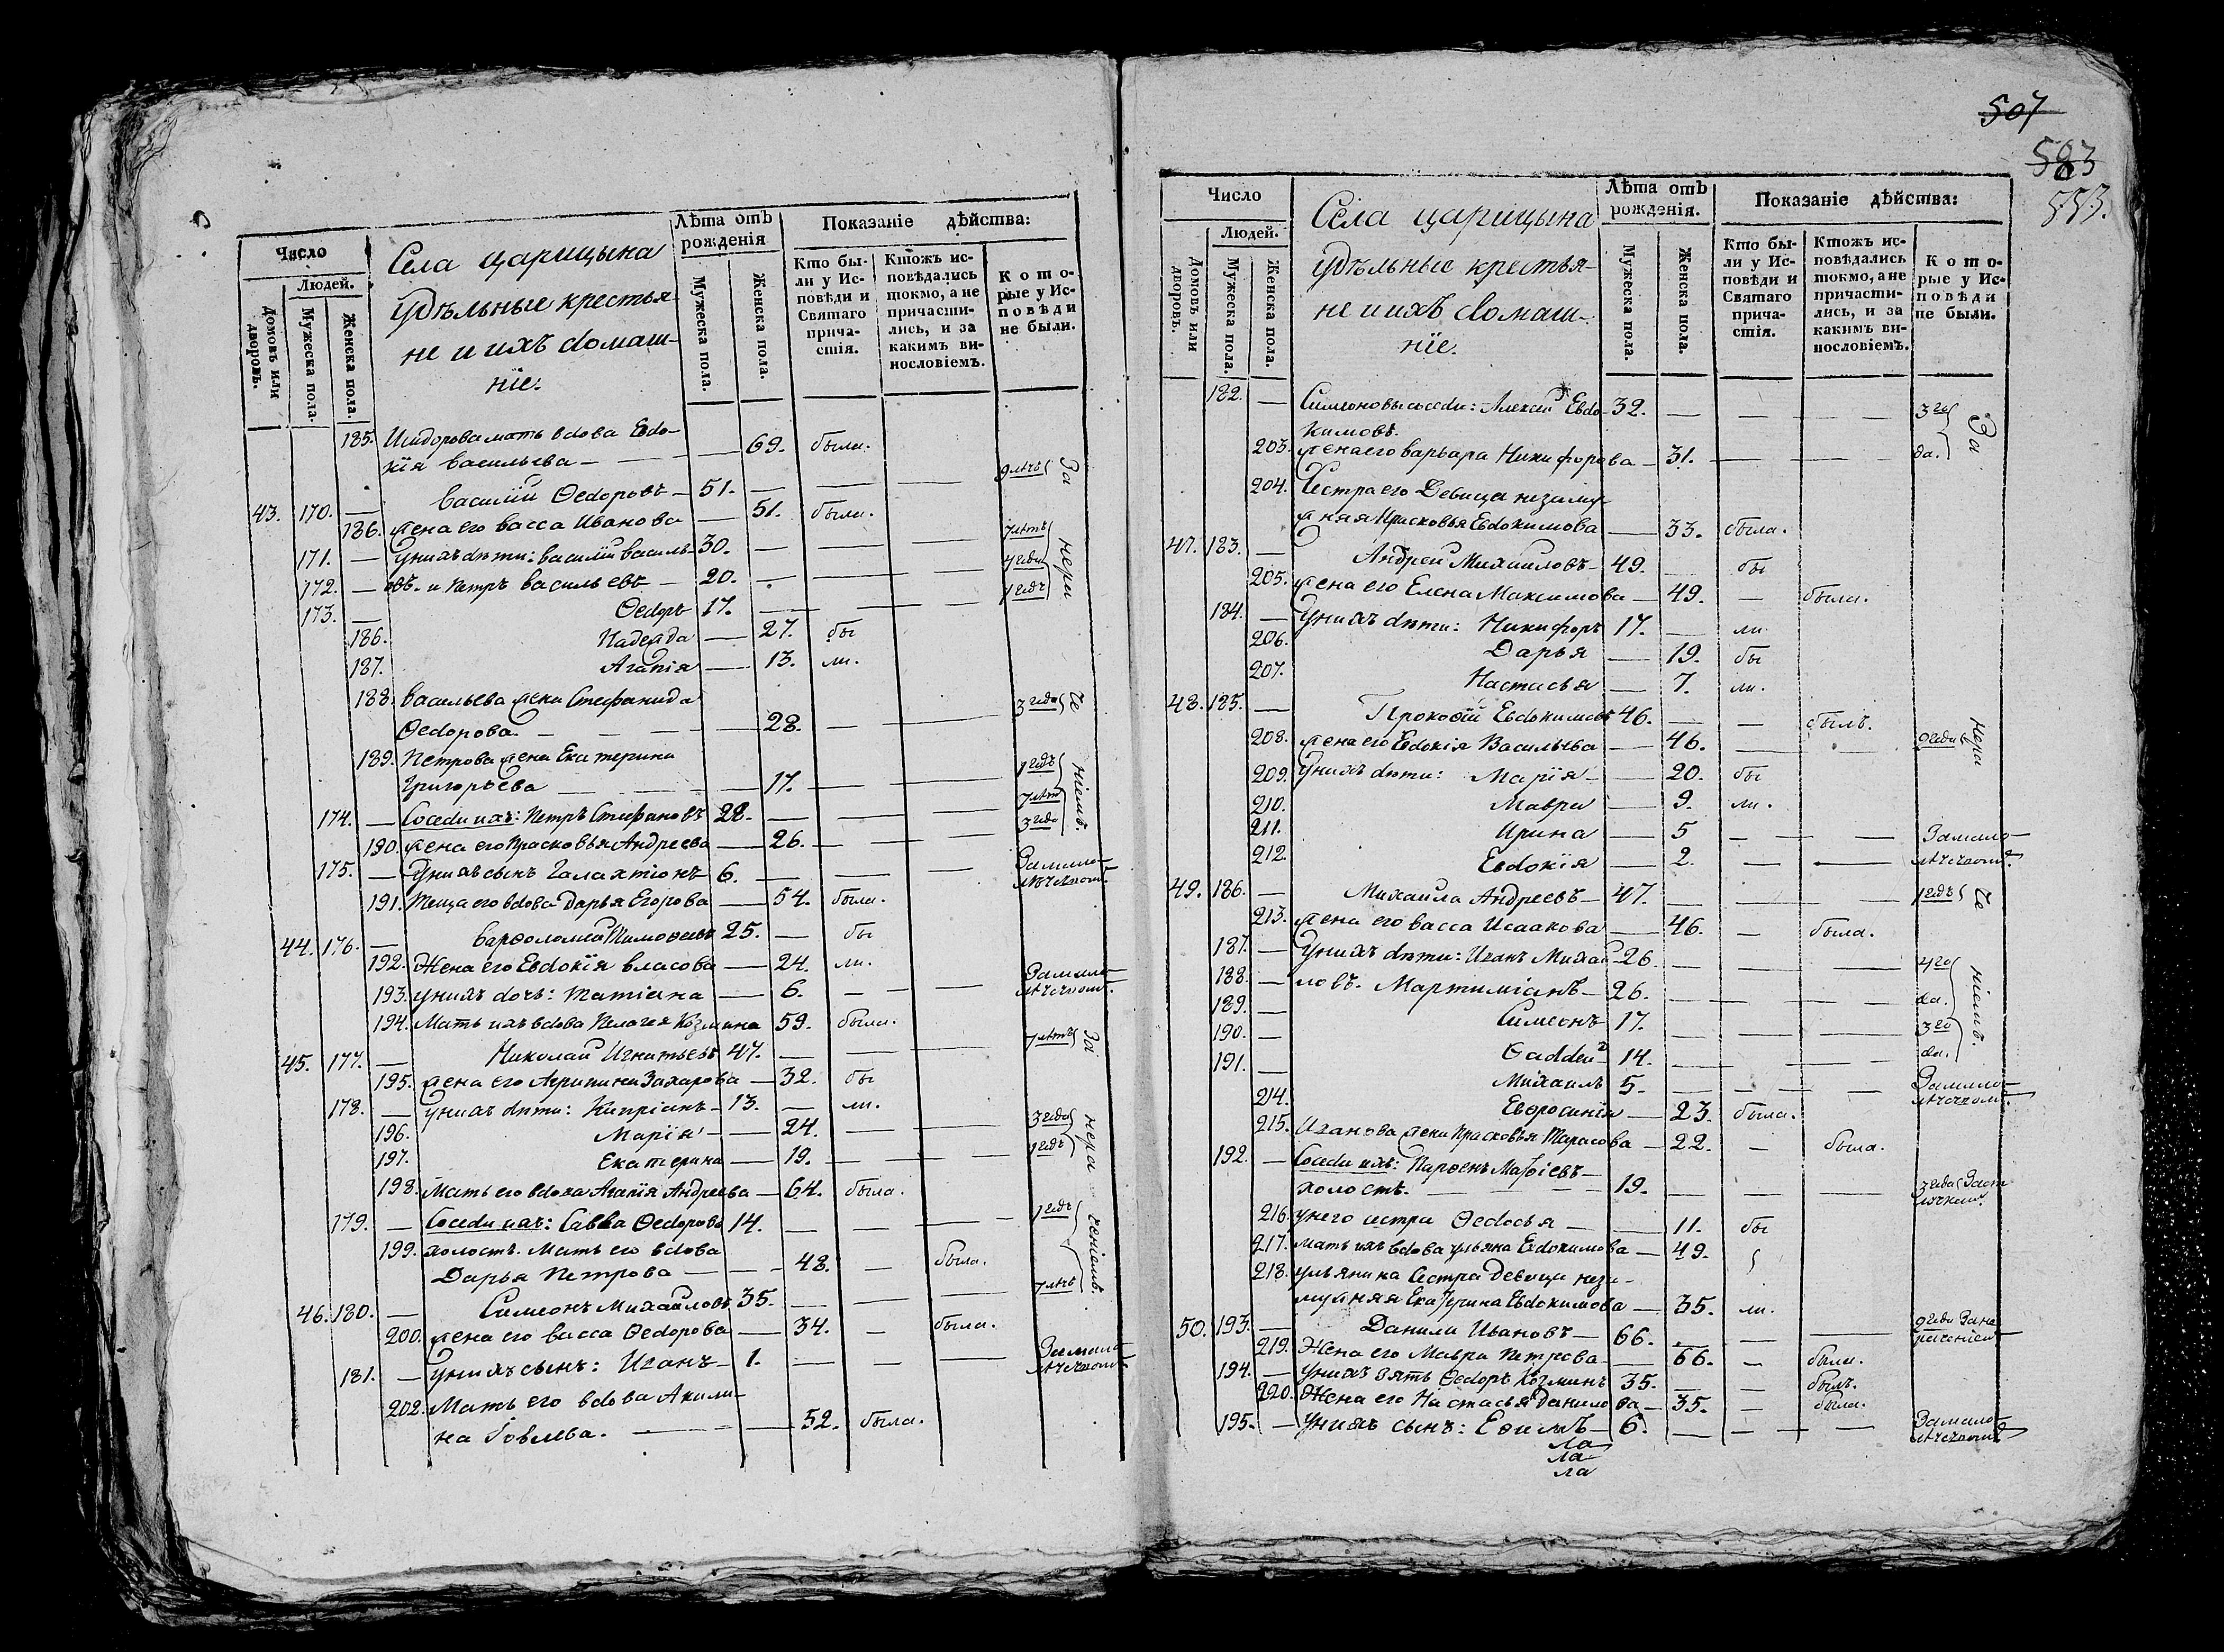 Число
Людей.
Домовъ или дворовъ.
Мужеска пола.
Женска пола.
Села царицына
Удѣльные крестья-
не и ихъ домаш-
ніе.
Лѣта отъ
рожденія
Мужеска пола.
Женска пола.
Показаніе дѣйства:
Кто бы-
ли у Ис-
повѣди и
Святаго
прича-
стія.
Ктожъ ис-
повѣдались
токмо, а не
причасти-
лись, и за
какимъ ви-
нословіемъ.
Кото-
рые у Ис-
повѣди
не были.
185. Исидорова мать вдова Евдо-
кія васильева — 69. была.
43. 170. — василій Ѳедоровъ — 51. — 9 лѣтъ За
186. жена его васса Иванова — 51. была.
171. — у нихъ дѣти: василій василь- 30. — 7 лѣтъ
172. — евъ. и Петръ васильевъ — 20. — 4 года
173. — Ѳедоръ 17. — 1 годъ нера
186. Надежда — 27. бы
187. Агапія — 13. ли.
188. васильева жена Стефанида
Ѳедорова. — 28. — 3 года че
189. Петрова жена Екатерина
Григорьева — 17. — 1 годъ
174. — Соседи ихъ: Петръ Стефановъ 28. — 7 лѣтъ
190. жена его Прасковья Андреева — 26. — 3 года ніемъ.
175. — У нихъ сынъ Галактіонъ 6. — За мало-
лѣтствомъ.
191. Теща его вдова Дарья Егорова — 54. была.
44. 176. — варѳоломей Тимоѳеевъ 25. — бы
192. Жена его Евдокія власова — 24. ли.
193. у нихъ дочь: Татіана — 6. — За мало-
лѣтствомъ.
194. Мать ихъ вдова Пелагея Козмина 59. была.
45. 177. — Николай Игнатьевъ 47. — 7 лѣтъ За
195. жена его Агрипина Захарова — 32. бы
178. — у нихъ дѣти: Кипріанъ — 13. — ли.
196. Марія — 24. — 3 года
197. Екатерина — 19. — 1 годъ нера
198. Мать его вдова Агапія Андреева — 64. была.
179. — Соседи ихъ: Савва Ѳедоровъ 14. — 1 годъ
199. холостъ. Мать его вдова
Дарья Петрова — 48. — была. ченіемъ.
46. 180. — Симеонъ Михайловъ 35. — 7 лѣтъ
200. жена его васса Ѳедорова — 34. — была.
181. — У нихъ сынъ: Иванъ — 1. — За мало-
лѣтствомъ
202. Мать его вдова Акили-
на Іовлева. — 52. была.
507
583
553.
Число
Людей.
Домовъ или дворовъ.
Мужеска пола.
Женска пола.
Села царицына
Удѣльные крестья-
не и ихъ домаш-
ніе.
Лѣта отъ
рожденія.
Мужеска пола.
Женска пола.
Показаніе дѣйства:
Кто бы-
ли у Ис-
повѣди и
Святаго
прича-
стія.
Ктожъ ис-
повѣдались
токмо, а не
причасти-
лись, и за
какимъ ви-
нословіемъ.
Кото-
рые у Ис-
повѣди
не были.
182. — Симеоновы соседи: Алексей Евдо- 32. — 3 го За
кимовъ.
203. жена его варвара Никифорова — 31. — да.
204. Сестра его Девица незаму-
жняя Прасковья Евдокимова — 33. была.
47. 183. — Андрей Михайловъ — 49. — бы
205. жена его Елена Максимова — 49. — была.
184. — У нихъ дѣти: Никифоръ 17. — ли
206. Дарья — 19. бы
207. Настасья — 7. ли.
48. 185. — Прокофій Евдокимовъ 46. — — былъ.
208. жена его Евдокія Васильева — 46. — 9 года нера
209. У нихъ дѣти: Марія — 20. бы
210. Мавра — 9. ли.
211. Ирина — 5 — За мало-
212. Евдокія — 2. — лѣтствомъ.
49. 186. — Михайла Андреевъ — 47. — 1 годъ че
213. жена его васса Исаакова — 46. — была.
187. — У нихъ дѣти: Иванъ Михай- 26. — 4 го
188. — ловъ. Мартиміанъ — 26. — да.
189. — Симеонъ 17. — 3 го ніемъ.
190. — Ѳаддей 14. — да.
191. — Михаилъ 5. — За мало-
лѣтствомъ.
214. Евфросинія — 23. была.
215. Иванова жена Прасковья Тарасова — 22. — была.
192. — Соседи ихъ: Парѳенъ Маѳіевъ —
холостъ. — 19. — 3 года
216. у него сестра Ѳедосья — 11. бы
217. мать ихъ вдова ульяна Евдокимова — 49.
218. ульянина Сестра девица неза-
мужняя Екатерина Евдокимова — 35. ли.
50. 193. — Данила Ивановъ — 66. — 9 года За не
раченіемъ
219. Жена его Мавра Петрова — 66. — была.
194. — У нихъ зять Ѳедоръ Козминъ 35. — былъ.
220. Жена его Настасья Данилова — 35. — была.
195. — У нихъ сынъ: Еѳимъ — 6. — За мало-
лѣтствомъ
ла
ла
ла